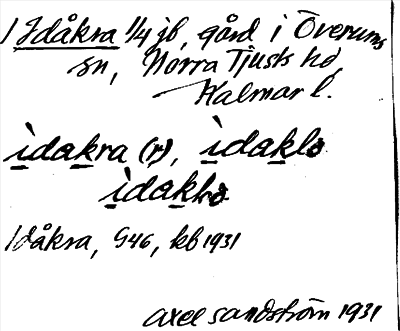 Idåkra 1/4 jb, gård i Överums
sn, Norra Tjusts hd,
Kalmar l.
ìdakra (r), ìdaklə
ìdakkə
Idåkra, G46, kb 1931
Axel Sandström 1931